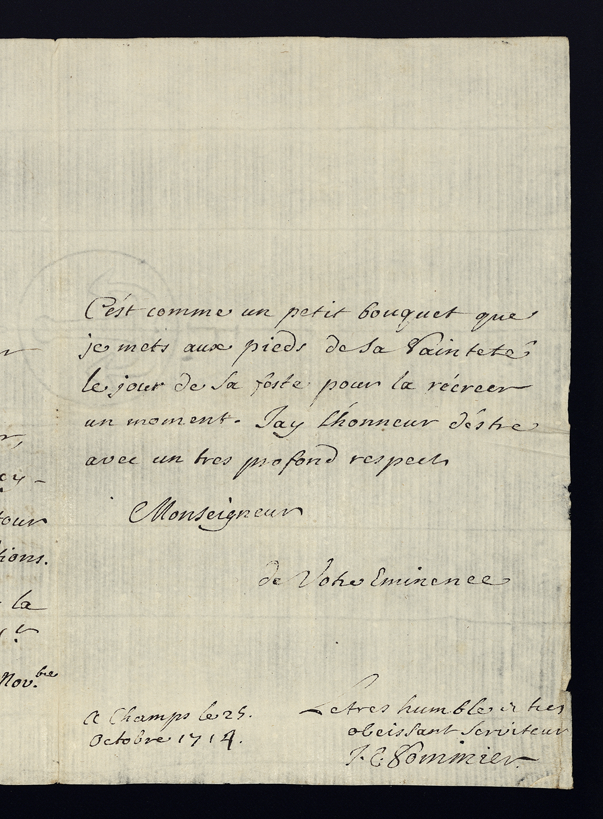 C'est comme un petit bouquet que
je mets aux pieds de Sa Sainteté
le jour de Sa feste pour la récréer
un moment. Jay L'honneur d'éstre
avec un tres profond respect
Monseigneur
de Votre Eminence
la
tions.
Nov.bre
A Champs le 25.
Octobre 1714.
Le tres humble & tres
obeissant Serviteur